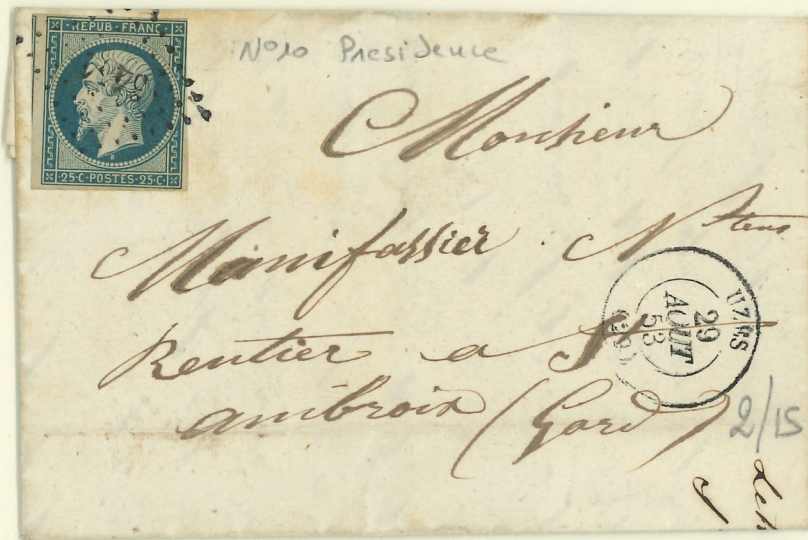 REPUB·FRANC
·25·C·POSTES·25·C·
N°10 Presidence
Monsieur
Manifassier. N^tens
Rentier a St
ambroix (Gard)
UZÈS
29
AOUT
53
2/15